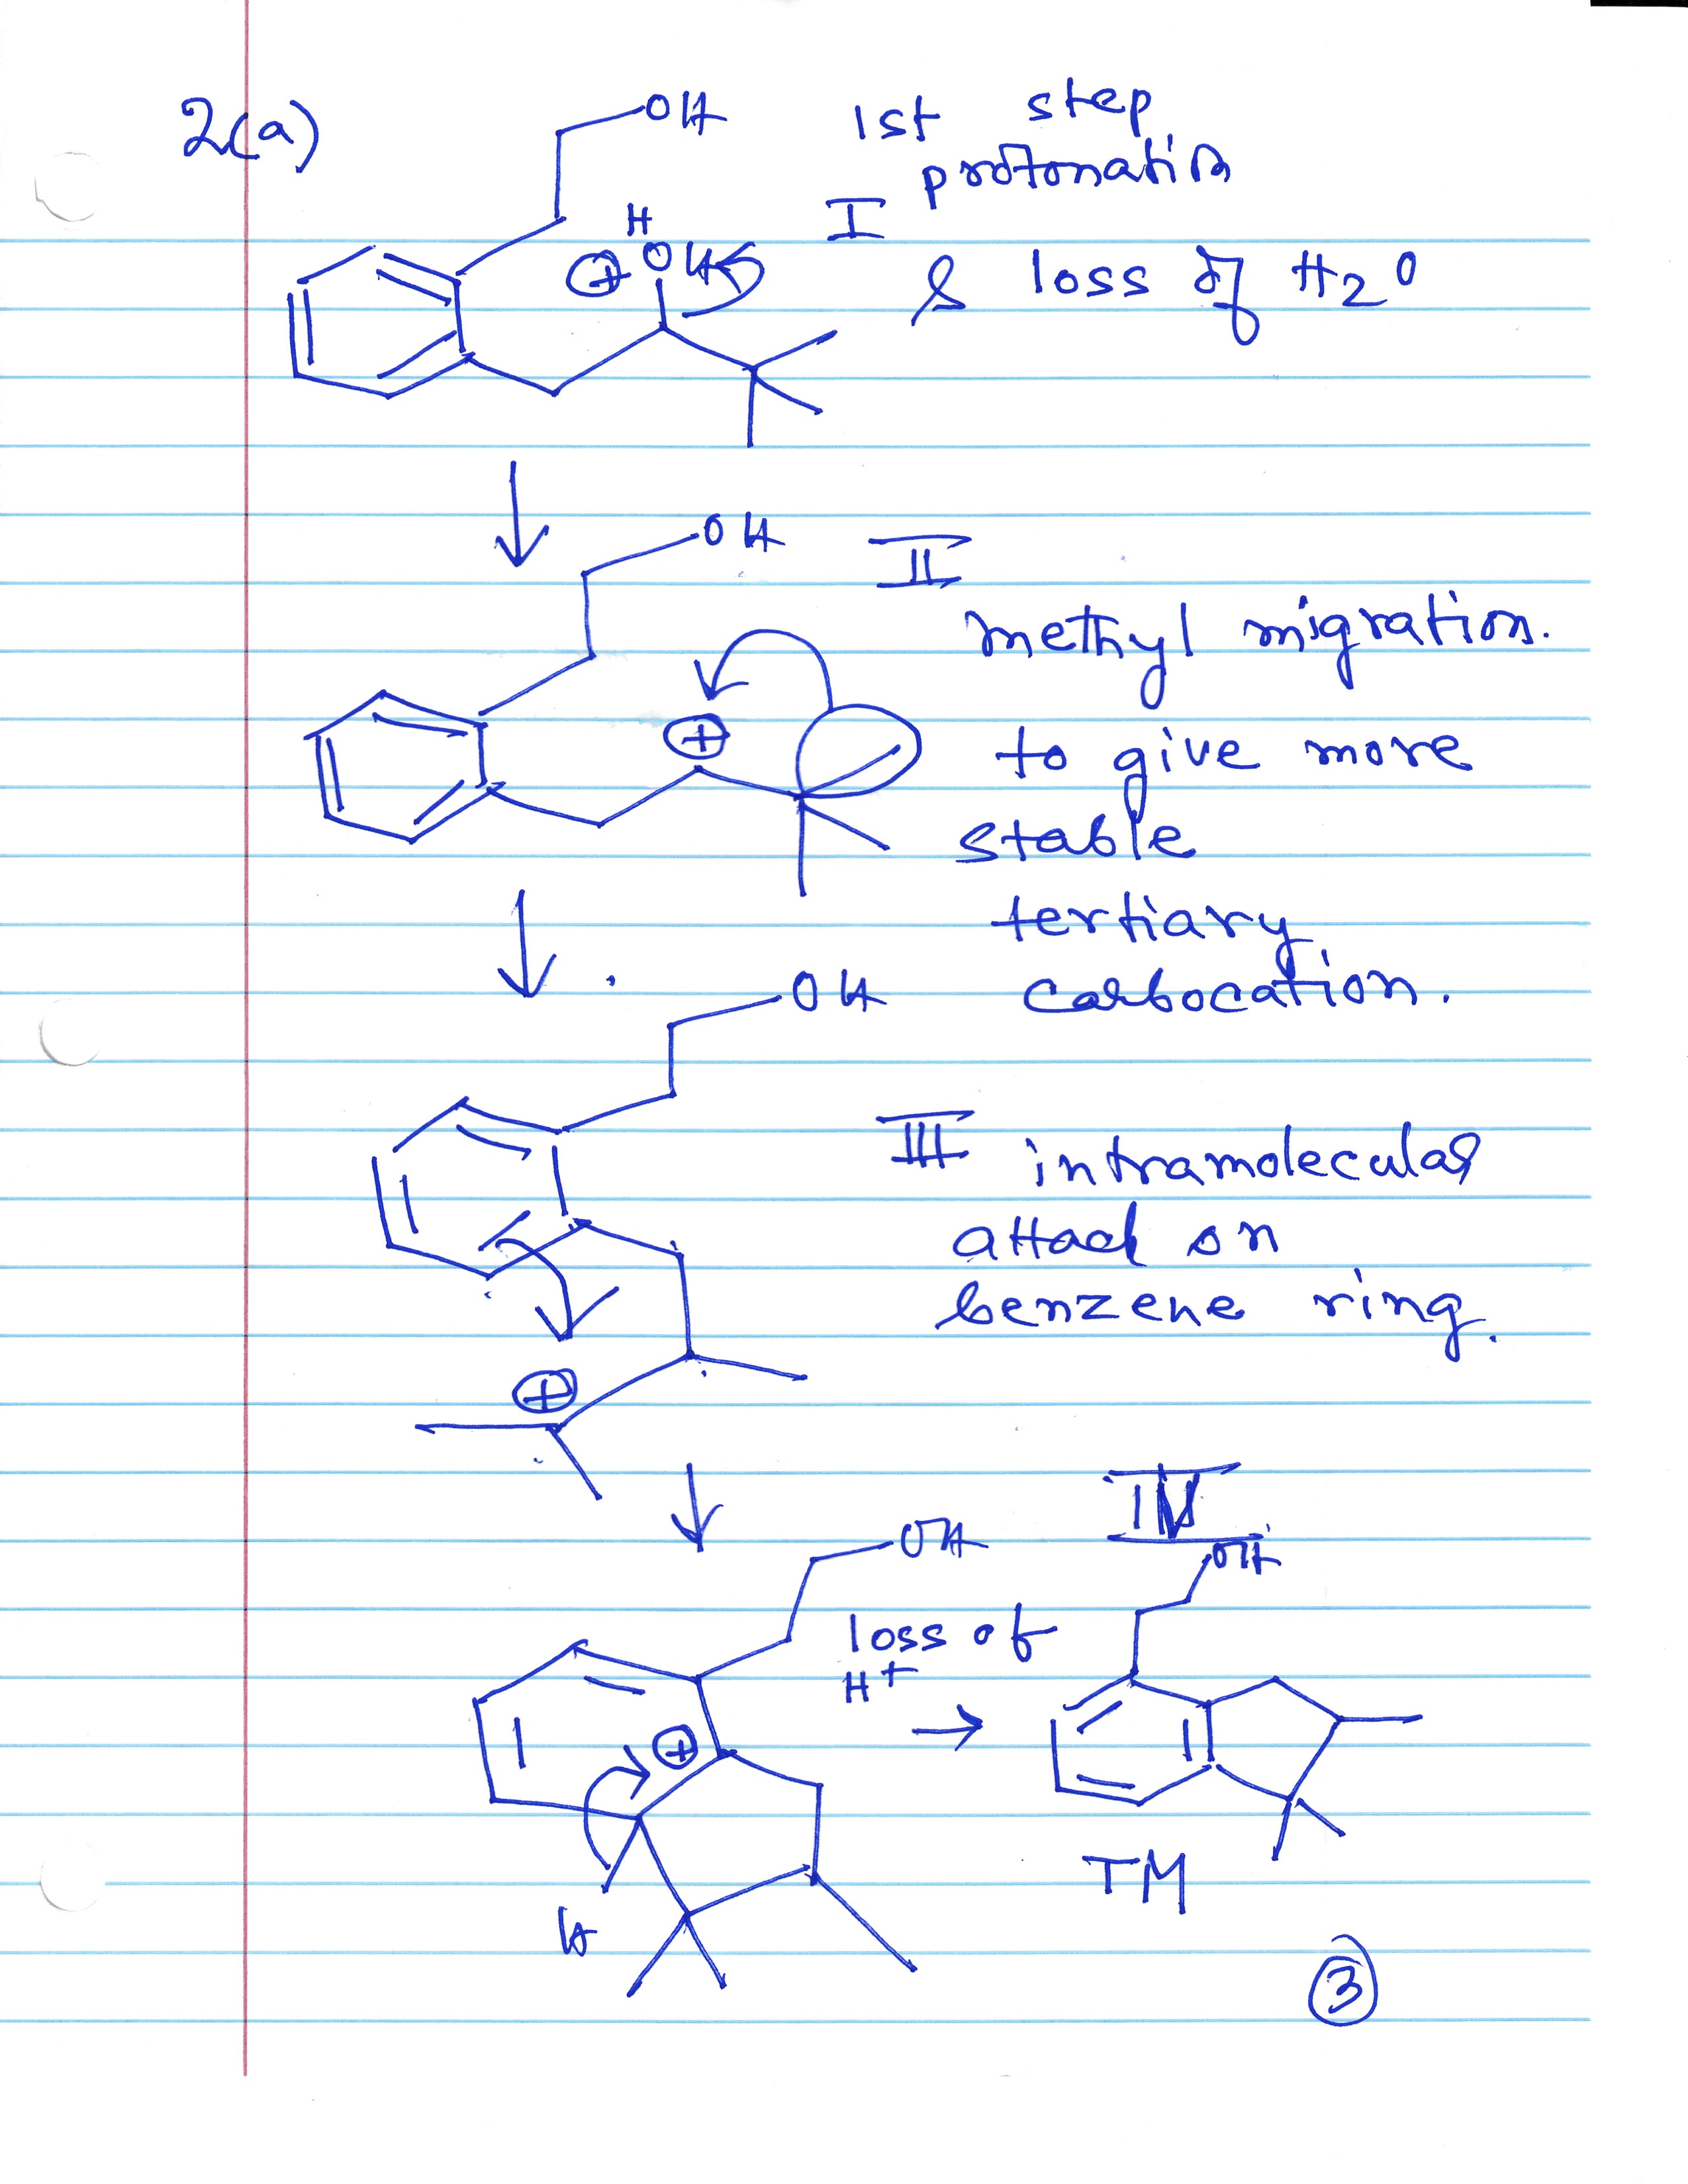 2(a)
OH
1st step
protonation
I
H
⊕ OH
& loss of H2O
OH
II
methyl migration.
⊕
to give more
stable
tertiary
carbocation.
OH
III intramolecular
attack on
benzene ring.
⊕
IV
OH
OH
loss of
H+
⊕
TM
H
3